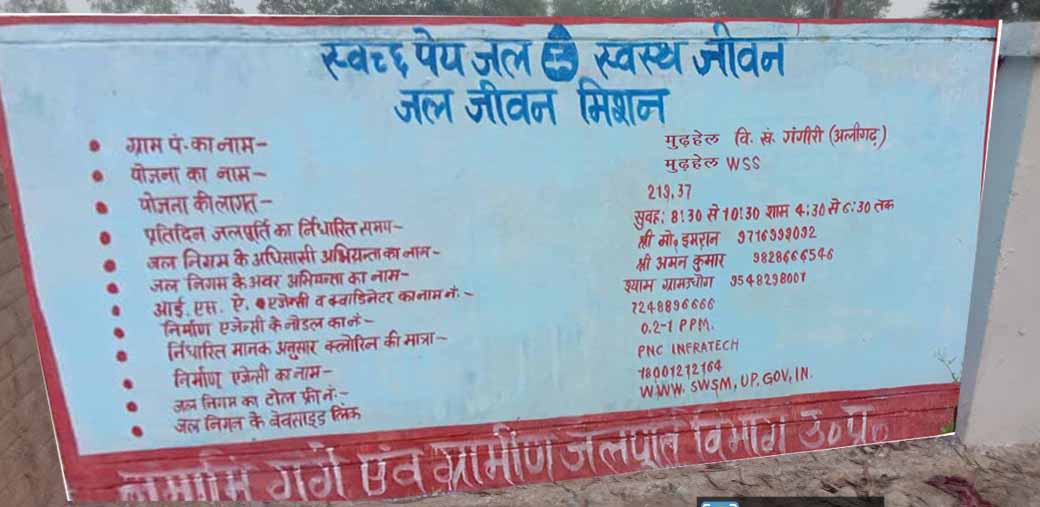 स्वच्छ पेय जल स्वस्थ जीवन
जल जीवन मिशन
ग्राम पं. का नाम- मुढ़हेल वि. खं. गंगीरी (अलीगढ़)
योजना का नाम- मुढ़हेल WSS
योजना की लागत- 219,37
प्रतिदिन जलपूर्ति का निर्धारित समय- सुवह: 8:30 से 10:30 शाम 4:30 से 6:30 तक
जल निगम के अधिसासी अभियन्ता का नाम- श्री मो. इमरान 9716999092
जल निगम के अवर अभियन्ता का नाम- श्री अमन कुमार 9828666546
आई. एस. ऐ. एजेन्सी व क्वाडिनेटर का नाम नं.- श्याम ग्रामउधोग 9548298001
निर्माण एजेन्सी के नोडल का नं- 7248896666
निर्धारित मानक अनुसार क्लोरिन की मात्रा- 0.2-1 PPM.
निर्माण एजेन्सी का नाम- PNC INFRATECH
जल निगम का टोल फ्री नं:- 18001212164
जल निगम के बेवसाइड लिंक WWW. SWSM, UP, GOV, IN.
नमामि गंगे एंव ग्रामीण जलपूर्ति विभाग उ०प्र०